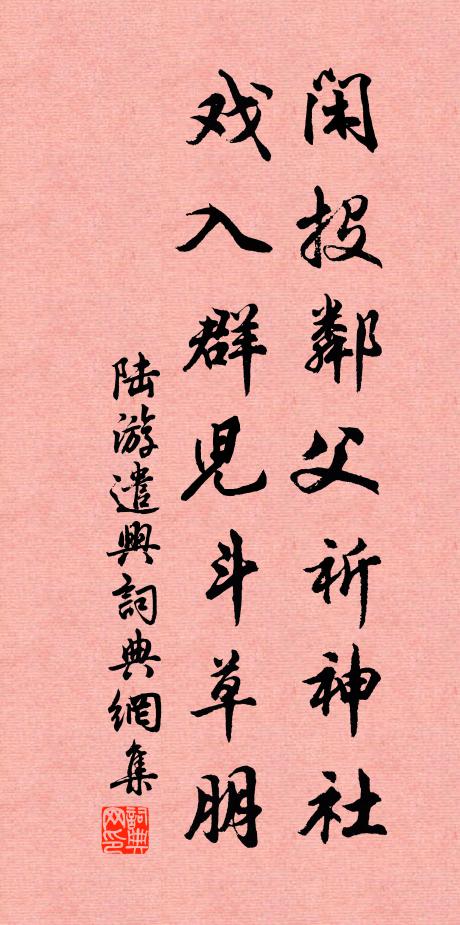 閑投鄰父祈神社
戏入群兒斗草朋
陆游遣興詞典網集
詞典网印